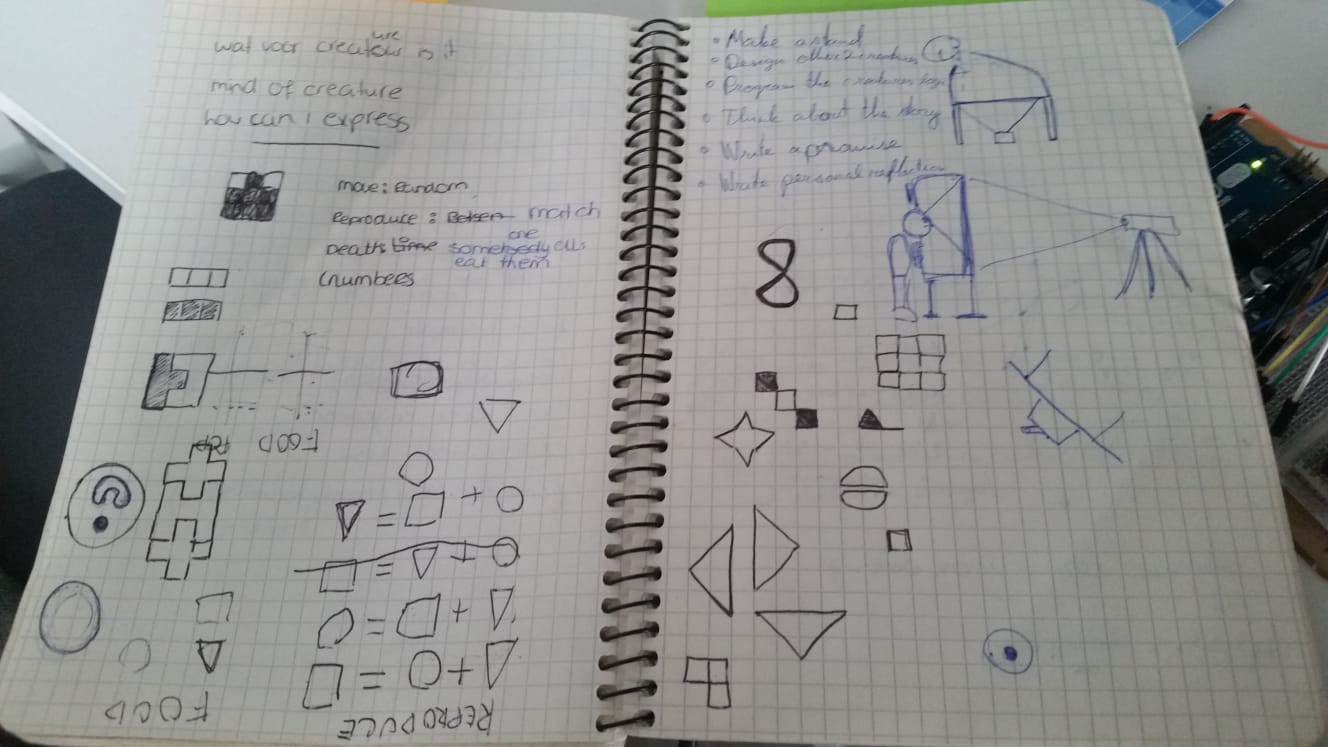 wat voor creature is it
mind of creature
how can i express
move: Random
Reproduce: match
Death: time somebody els
eat them
(numbers
FOOD
▽ = □ + ○
□ = ▽ + ○
○ = □ + ▽
□ = ○ + ▽
FOOD
REPRODUCE
• Make a stand
• Design other 2 creatures
• Program the creatures
• Think about the story
• Write a
• Write personal reflection
8